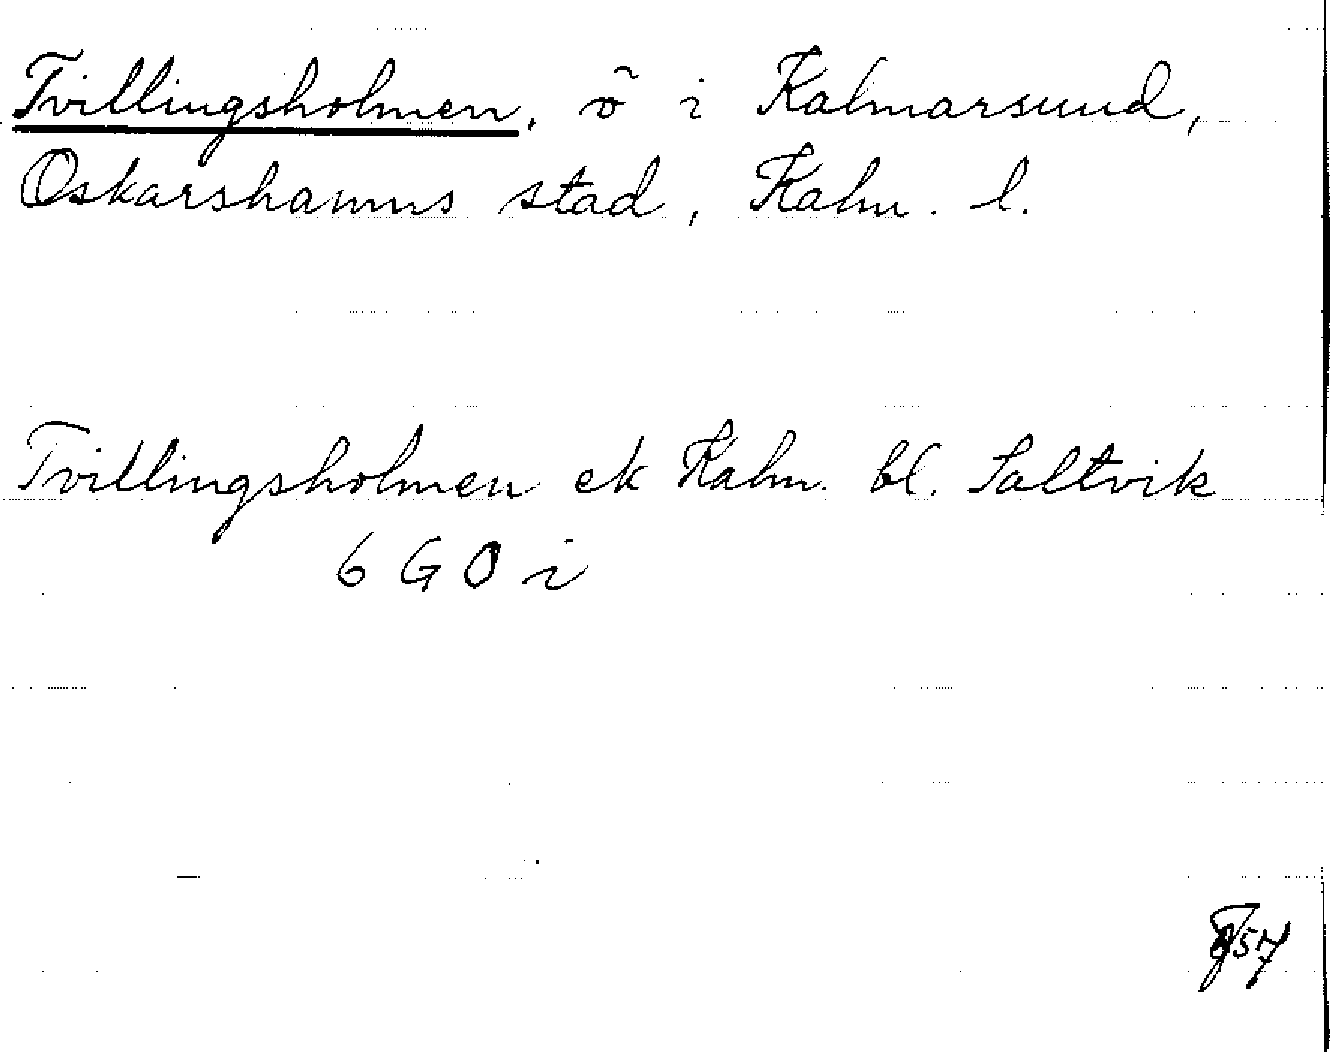 Tvillingsholmen, ö i Kalmarsund,
Oskarshamns stad, Kalm. l.
Tvillingsholmen ek Kalm. bl. Saltvik
6 G O i
57